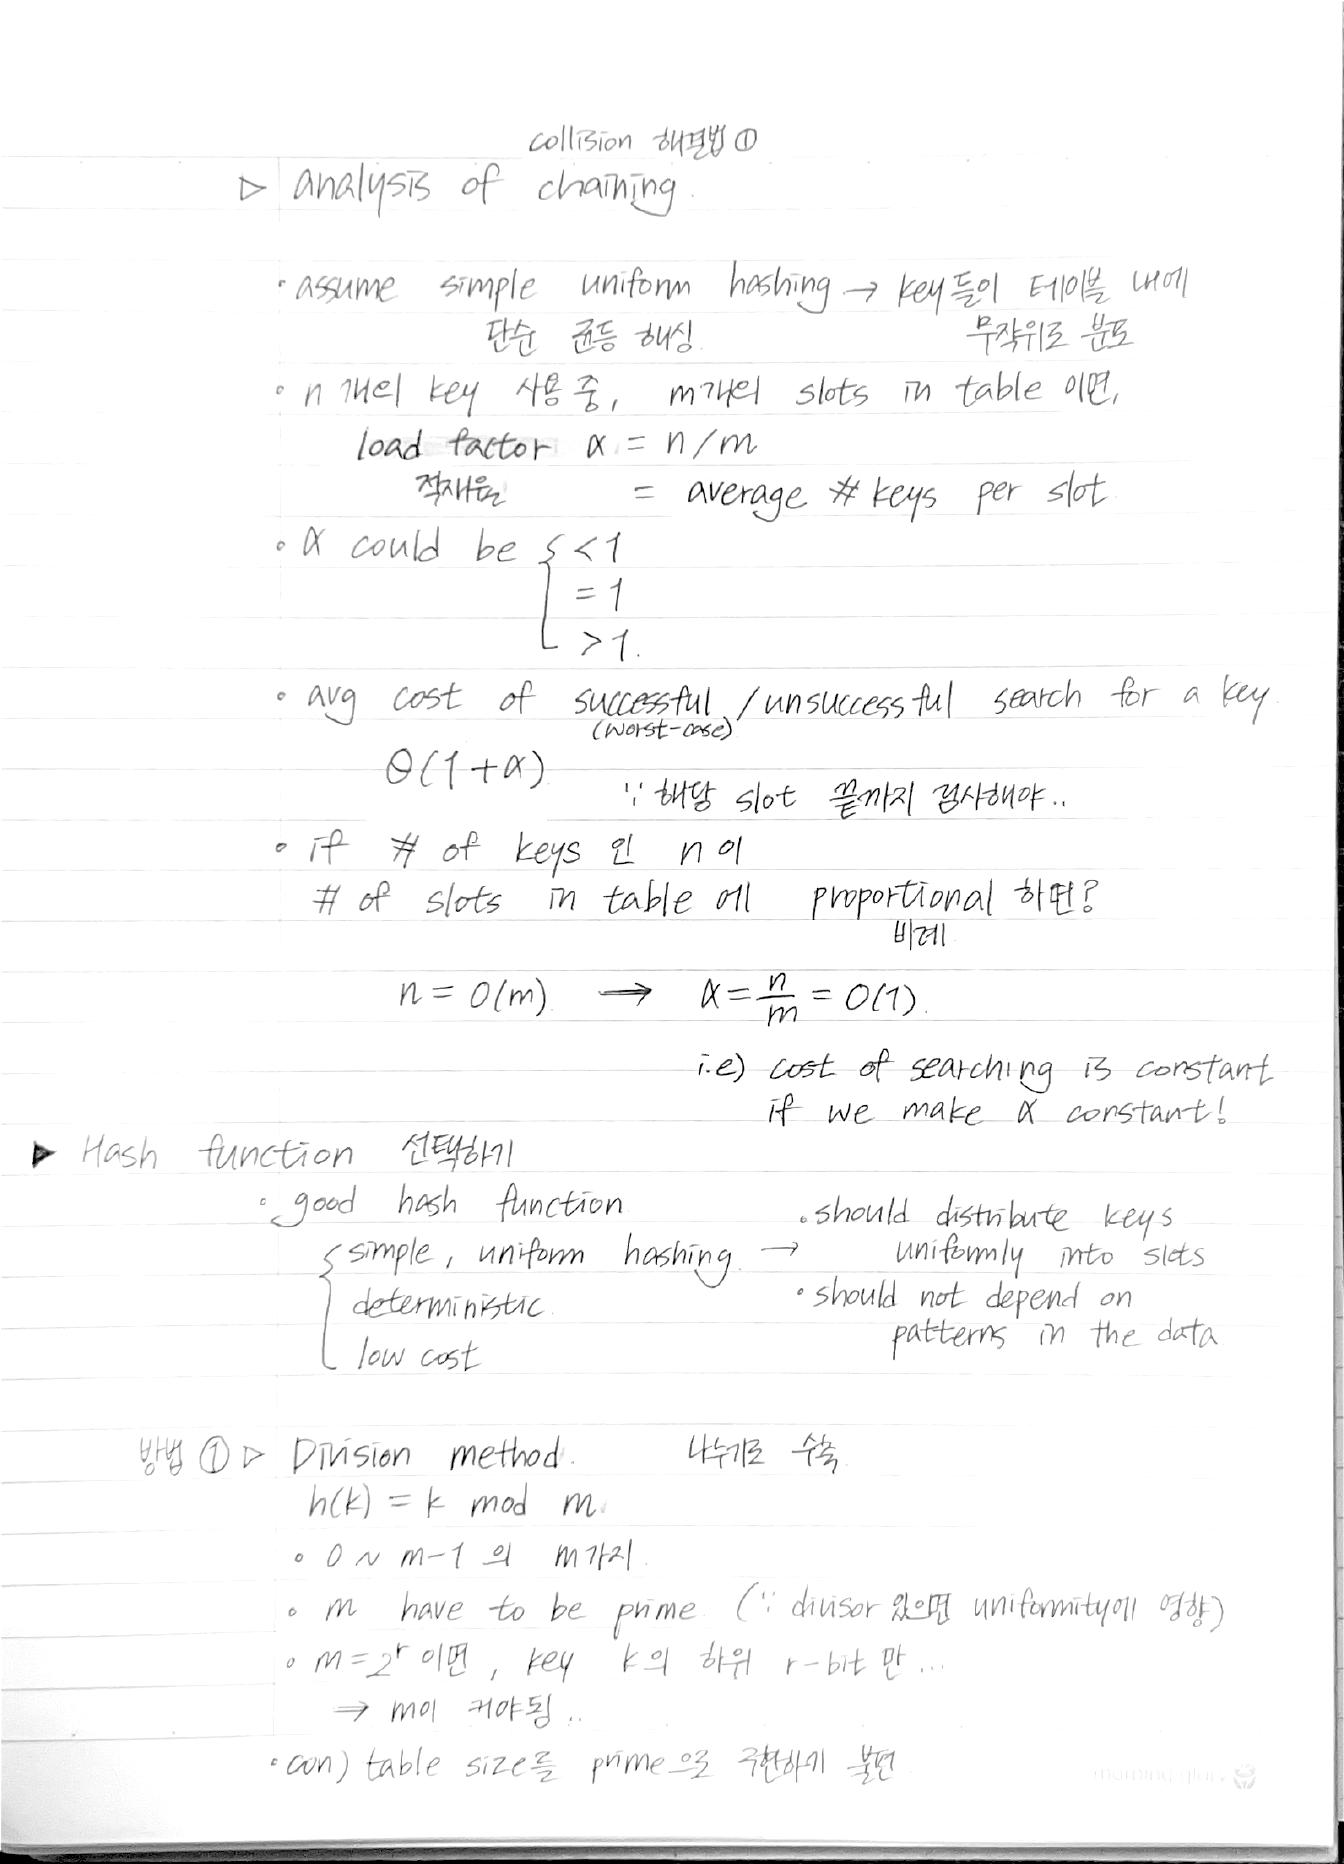 collision 해결법 ①
▷ analysis of chaining.
• assume simple uniform hashing → key들이 테이블 내에
단순 균등 해싱 무작위로 분포
• n개의 key 사용중, m개의 slots in table 이면,
load factor α = n/m
적재율 = average # keys per slot
• α could be { < 1
= 1
> 1.
• avg cost of successful / unsuccessful search for a key.
(worst-case)
Θ(1+α)
∵ 해당 slot 끝까지 검사해야..
• if # of keys 인 n 이
# of slots in table 에 proportional 하면?
비례
n = O(m) → α = n/m = O(1).
i.e) cost of searching is constant
if we make α constant!
▶ Hash function 선택하기
• good hash function
• should distribute keys
{ simple, uniform hashing → uniformly into slots
deterministic • should not depend on
patterns in the data
low cost
방법 ① ▷ Division method. 나누기로 수축
h(k) = k mod m
• 0 ~ m-1 의 m가지
• m have to be prime (∵ divisor 있으면 uniformity에 영향)
• m = 2^r 이면, key k의 하위 r-bit 만...
⇒ m이 커야됨..
• con) table size를 prime으로 구현하기 불편
morning glory